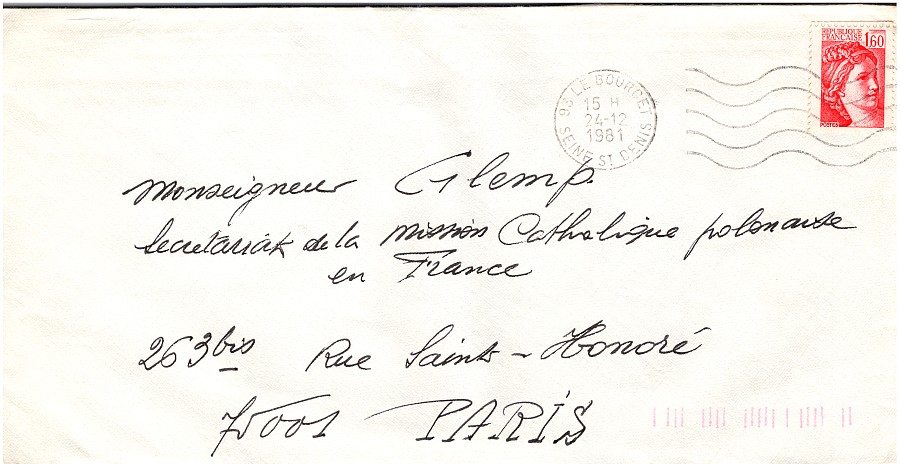 REPUBLIQUE
FRANCAISE 1,60
POSTES
93 LE BOURGET
15 H
24-12
1981
SEINE ST DENIS
Monseigneur Glemp.
Secrétariat de la Mission Catholique polonaise
en France
263 bis Rue Saint-Honoré
75001 PARIS